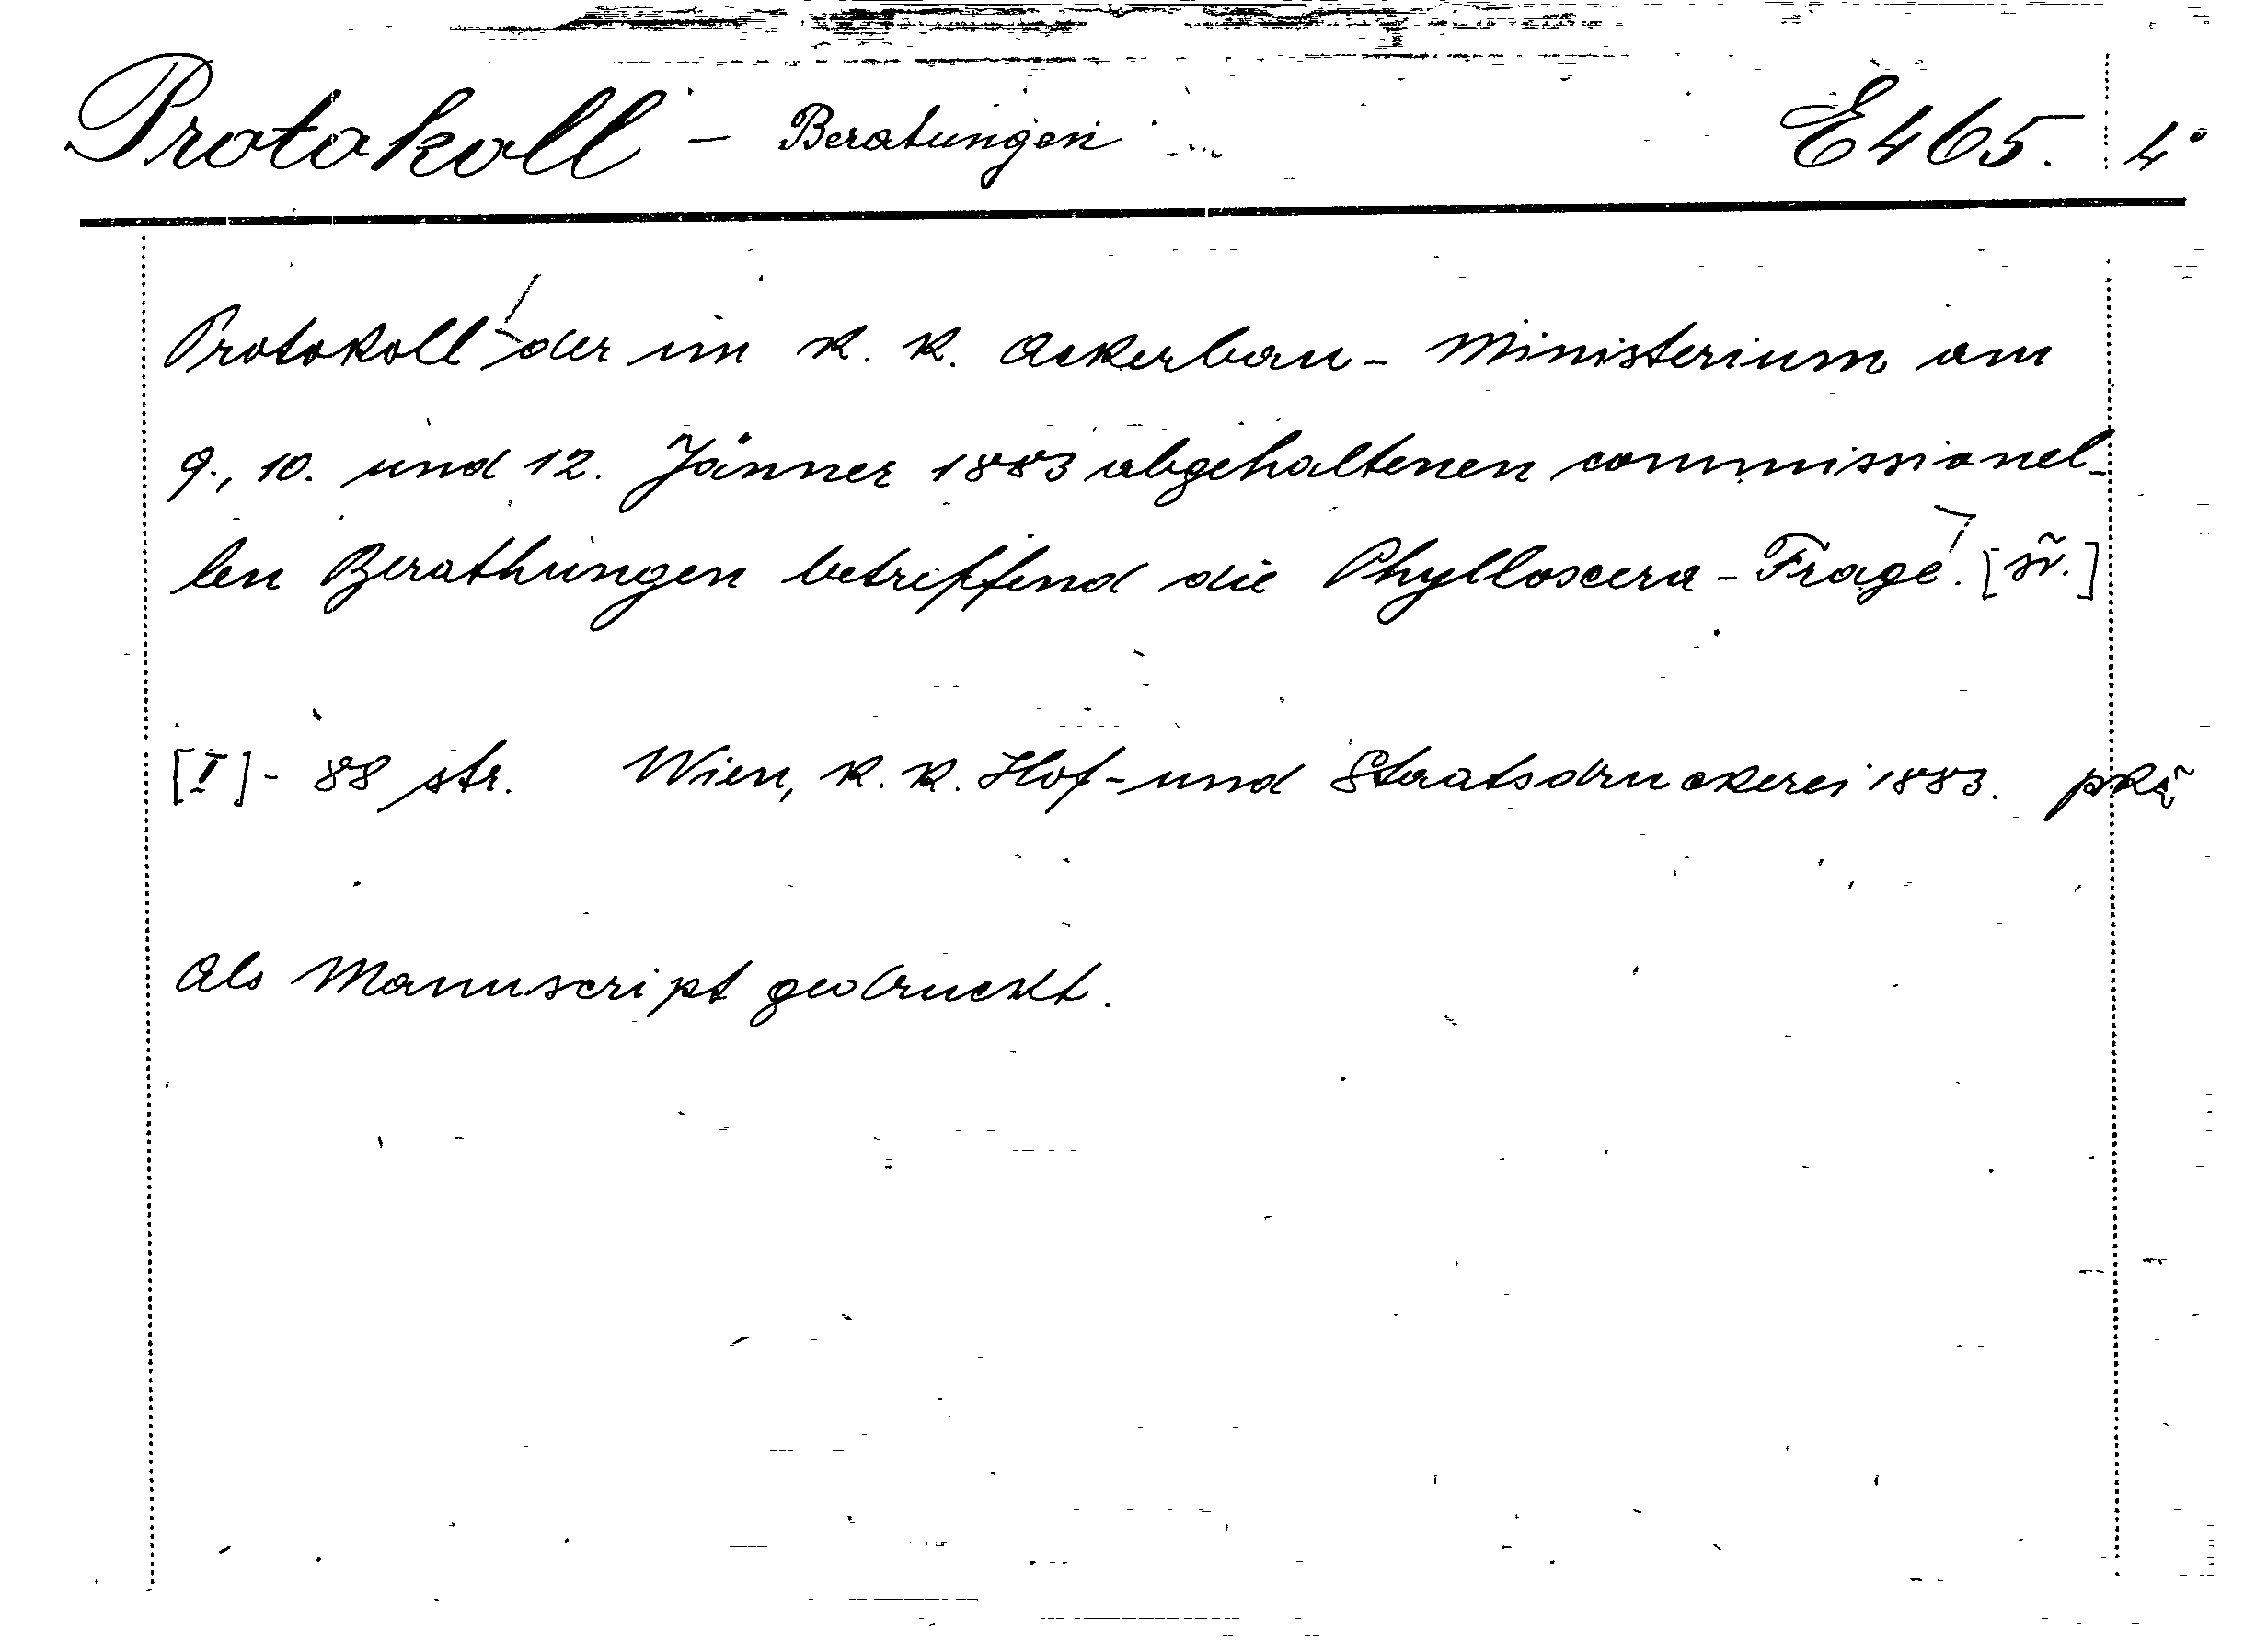 Protokoll – Beratungen E 465. 4°
Protokoll der im k. k. Ackerbau-Ministerium am
9., 10. und 12. Jänner 1883 abgehaltenen commissionel-
len Berathungen betreffend die Phylloxera-Frage. [sv.]
[I]- 88 str. Wien, k. k. Hof- und Staatsdruckerei 1883.
Als Manuscript gedruckt.